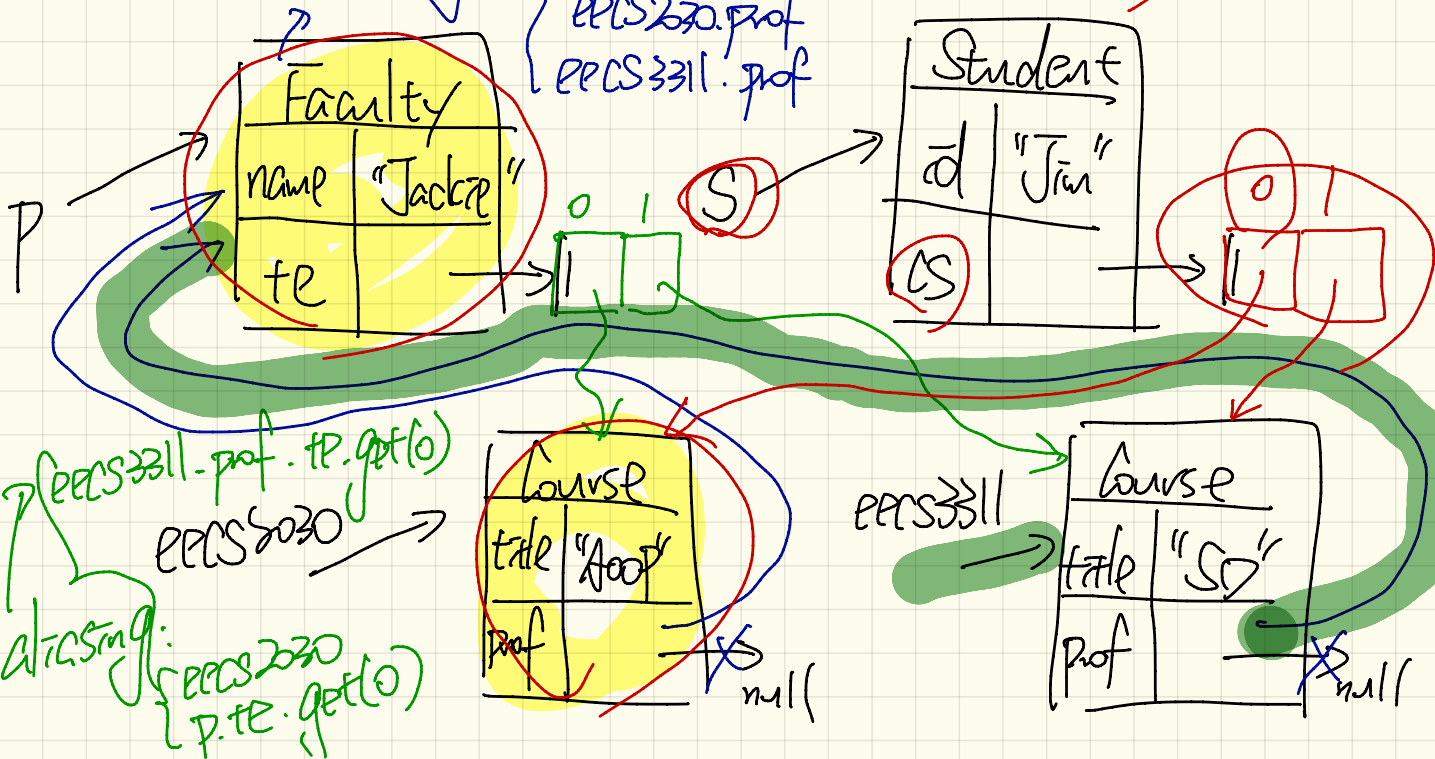 eecs2030.prof
eecs3311.prof
Faculty
name "Jackie"
te
P
0 1
S
Student
id "Jim"
cs
0 1
eecs3311.prof.te.get(0)
eecs2030
Course
title "Aoop"
prof
null
eecs3311
Course
title "SD"
prof
null
aliasing:
eecs2030
p.te.get(0)